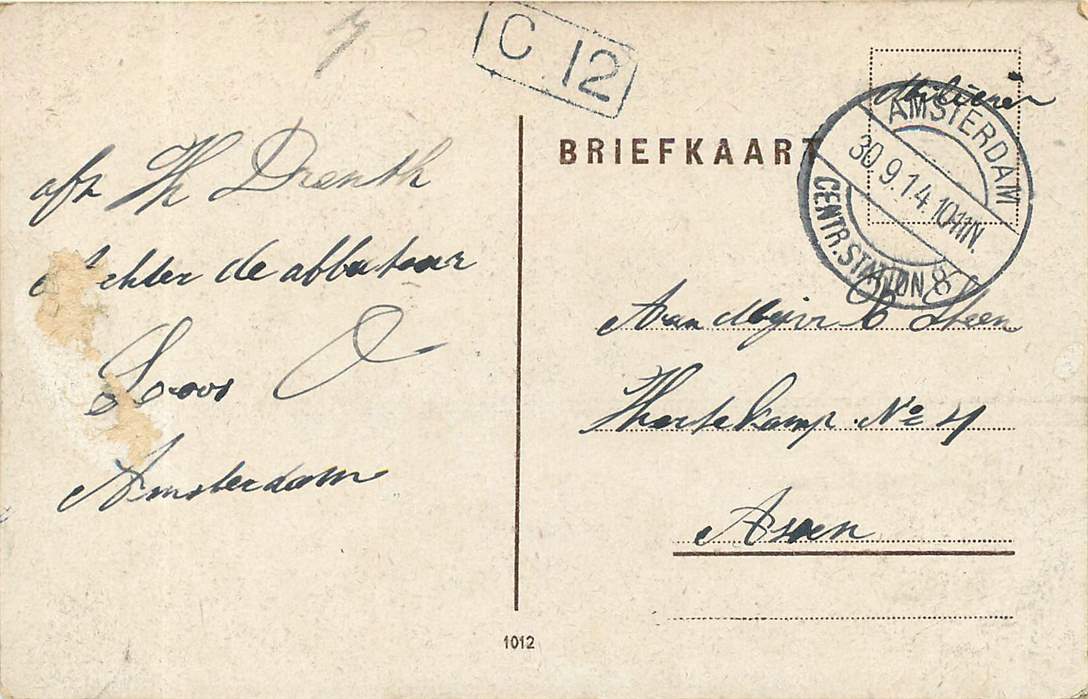 C 12
BRIEFKAART
Militair
AMSTERDAM
30.9.14 10-11N
CENTR. STATION 8
afz H Drenth
Achter de abbatoar
Loods C
Amsterdam
Aan Mejvr B Steen
Hertekamp No 4
Assen
1012